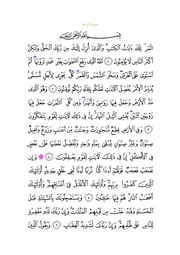 سورة الرعد
بِسْمِ ٱللَّهِ ٱلرَّحْمَٰنِ ٱلرَّحِيمِ
الٓمٓر ۚ تِلْكَ ءَايَٰتُ ٱلْكِتَٰبِ ۗ وَٱلَّذِىٓ أُنزِلَ إِلَيْكَ مِن رَّبِّكَ ٱلْحَقُّ وَلَٰكِنَّ
أَكْثَرَ ٱلنَّاسِ لَا يُؤْمِنُونَ ۝ ٱللَّهُ ٱلَّذِى رَفَعَ ٱلسَّمَٰوَٰتِ بِغَيْرِ عَمَدٍ تَرَوْنَهَا ۖ ثُمَّ
ٱسْتَوَىٰ عَلَى ٱلْعَرْشِ ۖ وَسَخَّرَ ٱلشَّمْسَ وَٱلْقَمَرَ ۖ كُلٌّ يَجْرِى لِأَجَلٍ مُّسَمًّى ۚ
يُدَبِّرُ ٱلْأَمْرَ يُفَصِّلُ ٱلْءَايَٰتِ لَعَلَّكُم بِلِقَآءِ رَبِّكُمْ تُوقِنُونَ ۝ وَهُوَ ٱلَّذِى
مَدَّ ٱلْأَرْضَ وَجَعَلَ فِيهَا رَوَٰسِىَ وَأَنْهَٰرًا ۖ وَمِن كُلِّ ٱلثَّمَرَٰتِ جَعَلَ فِيهَا
زَوْجَيْنِ ٱثْنَيْنِ ۖ يُغْشِى ٱلَّيْلَ ٱلنَّهَارَ ۚ إِنَّ فِى ذَٰلِكَ لَءَايَٰتٍ لِّقَوْمٍ يَتَفَكَّرُونَ
۝ وَفِى ٱلْأَرْضِ قِطَعٌ مُّتَجَٰوِرَٰتٌ وَجَنَّٰتٌ مِّنْ أَعْنَٰبٍ وَزَرْعٌ وَنَخِيلٌ
صِنْوَانٌ وَغَيْرُ صِنْوَانٍ يُسْقَىٰ بِمَآءٍ وَٰحِدٍ وَنُفَضِّلُ بَعْضَهَا عَلَىٰ بَعْضٍ
فِى ٱلْأُكُلِ ۚ إِنَّ فِى ذَٰلِكَ لَءَايَٰتٍ لِّقَوْمٍ يَعْقِلُونَ ۝ وَإِن
تَعْجَبْ فَعَجَبٌ قَوْلُهُمْ أَءِذَا كُنَّا تُرَٰبًا أَءِنَّا لَفِى خَلْقٍ جَدِيدٍ ۗ أُو۟لَٰٓئِكَ
ٱلَّذِينَ كَفَرُوا۟ بِرَبِّهِمْ ۖ وَأُو۟لَٰٓئِكَ ٱلْأَغْلَٰلُ فِىٓ أَعْنَاقِهِمْ ۖ وَأُو۟لَٰٓئِكَ
أَصْحَٰبُ ٱلنَّارِ ۖ هُمْ فِيهَا خَٰلِدُونَ ۝ وَيَسْتَعْجِلُونَكَ بِٱلسَّيِّئَةِ قَبْلَ
ٱلْحَسَنَةِ وَقَدْ خَلَتْ مِن قَبْلِهِمُ ٱلْمَثُلَٰتُ ۗ وَإِنَّ رَبَّكَ لَذُو مَغْفِرَةٍ
لِّلنَّاسِ عَلَىٰ ظُلْمِهِمْ ۖ وَإِنَّ رَبَّكَ لَشَدِيدُ ٱلْعِقَابِ ۝ وَيَقُولُ ٱلَّذِينَ